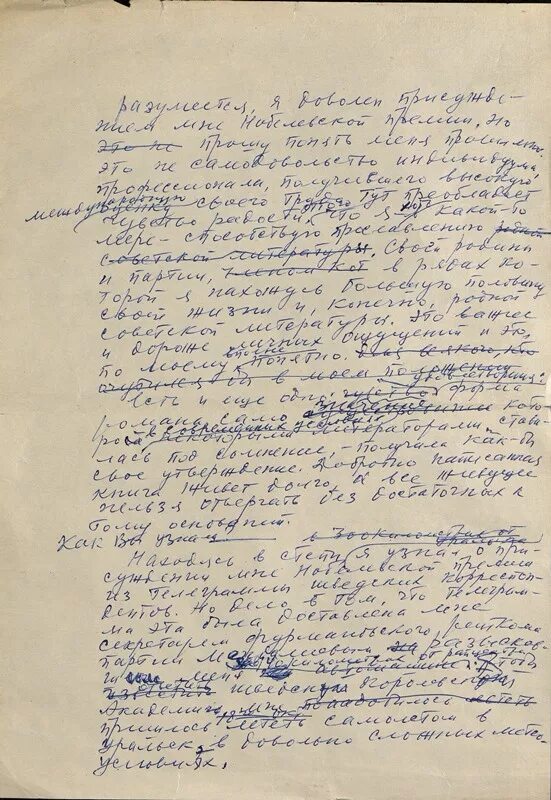 Разумеется, я доволен присужде-
нием мне Нобелевской премии, но
это не прошу понять меня правильно:
это не самодовольство индивидуума,
профессионала, получившего высокую
международную оценку своего труда. Тут преобладает
чувство радости, что я хоть в какой-то
мере — способствую прославлению
советской литературы. Своей родины
и партии, в рядах ко-
торой я нахожусь большую половину
своей жизни и, конечно, родной
советской литературы. Это важнее
и дороже личных ощущений и это,
по-моему, вполне понятно. Для всякого, кто
очутился бы в моем положении
Есть и еще одно чувство удовлетворения:
романа, само кото-
рого некоторыми литераторами стави-
лась под сомнение, — получила как бы
свое утверждение. Добротно написанная
книга живет долго, а все живущее
нельзя отвергать без достаточных к
тому оснований.
Как Вы узнали
Находясь в степи, я узнал о при-
суждении мне Нобелевской премии
из телеграммы шведских корреспон-
дентов. Но дело в том, что телеграм-
ма эта была доставлена мне
секретарем фурмановского райкома
партии Мендалиевым разыскав-
шим меня чтобы
известить шведскую королевскую
Академию, мне понадобилось лететь
пришлось лететь самолетом в
Уральск, в довольно сложных метео-
условиях.